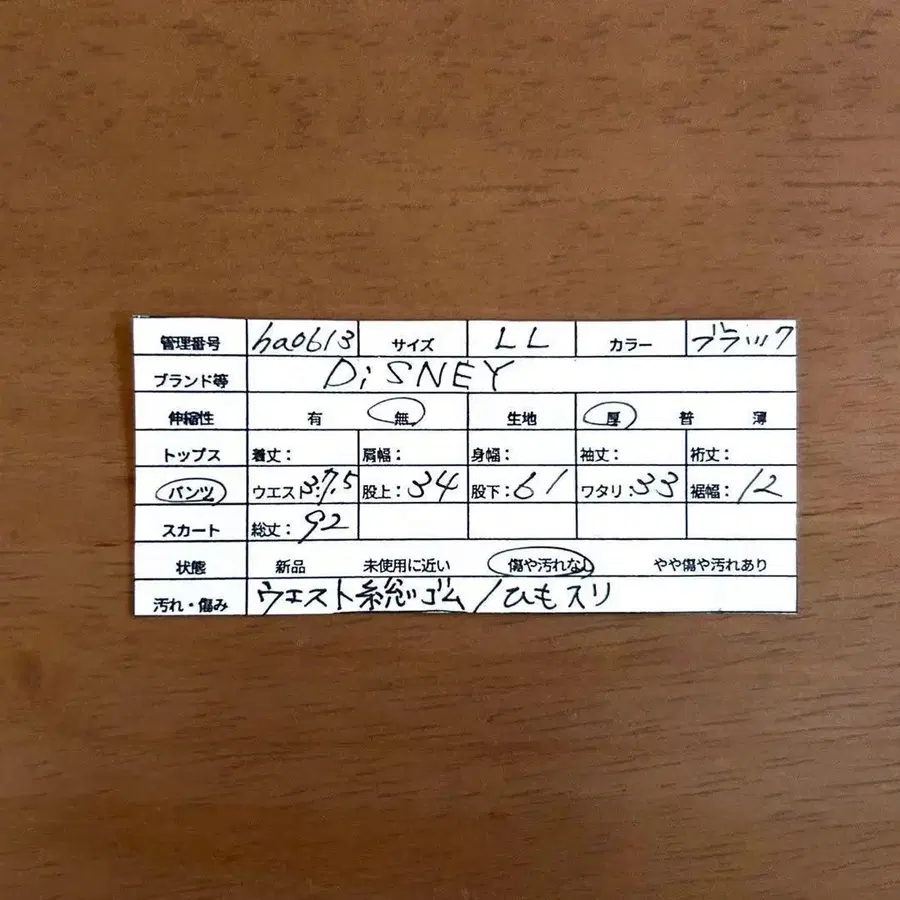 管理番号 ha0613 サイズ LL カラー ブラック
ブランド等 DiSNEY
伸縮性 有 無 生地 厚 普 薄
トップス 着丈: 肩幅: 身幅: 袖丈: 裄丈:
パンツ ウエスト:37.5 股上:34 股下:61 ワタリ:33 裾幅:12
スカート 総丈:92
状態 新品 未使用に近い 傷や汚れなし やや傷や汚れあり
汚れ・傷み ウエスト総ゴム/ひもスリ